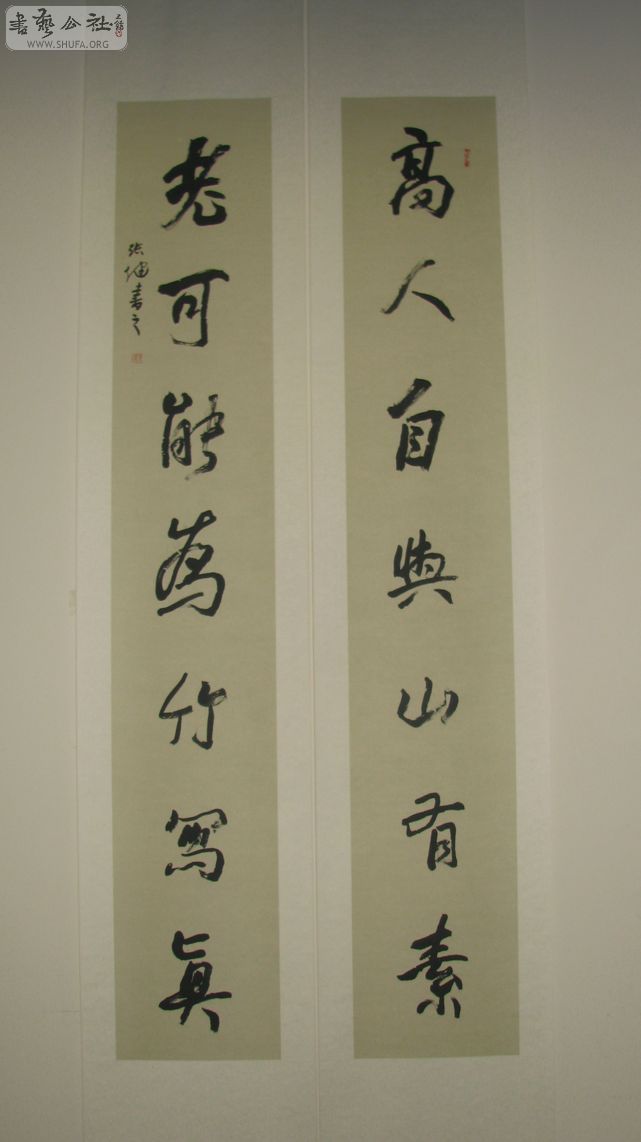 書藝公社
WWW.SHUFA.ORG
高人自與山有素
老可能為竹寫真